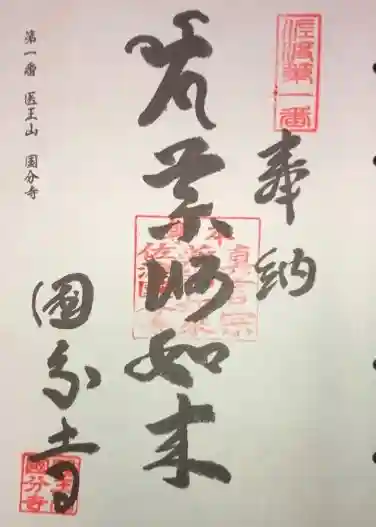 佐渡第一番
奉納
薬師如来
國分寺
第一番 医王山 國分寺
真言宗
國分寺